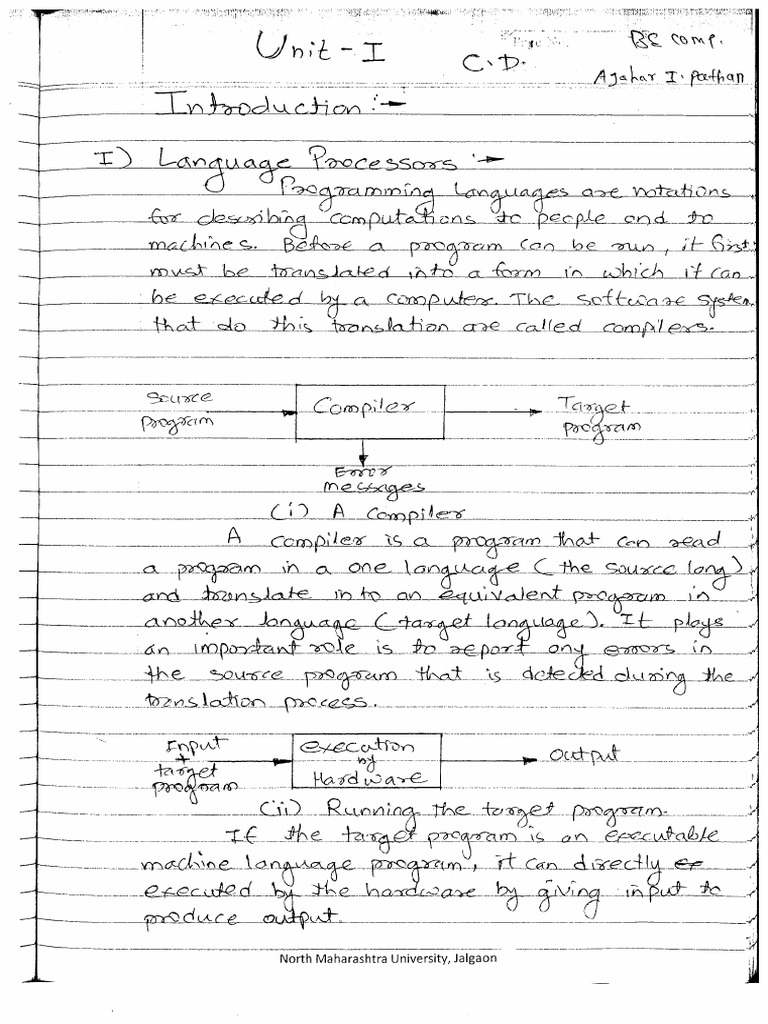 Unit - I
C.D.
BE comp.
Ajahar I. Pathan
Introduction :-
I) Language Processors :-
Programming languages are notations
for describing computations to people and to
machines. Before a program can be run, it first
must be translated into a form in which it can
be executed by a computer. The software system
that do this translation are called compilers.
Source program
Compiler
Target program
Error messages
(i) A compiler
A compiler is a program that can read
a program in a one language (the source long)
and translate in to an equivalent program in
another language (target language). It plays
an important role is to report any errors in
the source program that is detected during the
translation process.
Input + target program
execution by Hardware
output
(ii) Running the target program.
If the target program is an executable
machine language program, it can directly ex
executed by the hardware by giving input to
produce output.
North Maharashtra University, Jalgaon